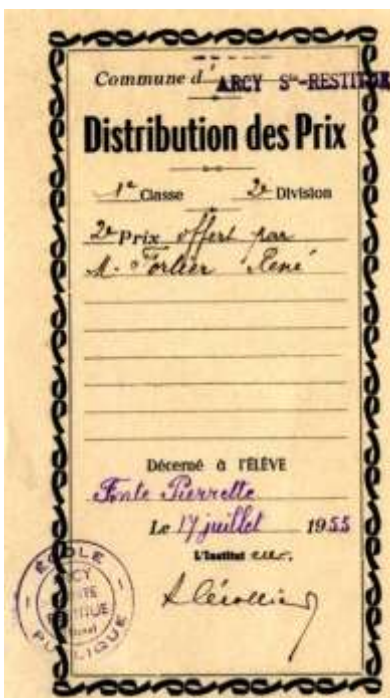 Commune d' ARCY Ste-RESTITUE
Distribution des Prix
1re Classe 2e Division
2e Prix offert par
M. Forlier René
Décerné à l'ÉLÈVE
Fonte Pierrette
Le 17 juillet 1955
L'Institut eur.
ÉCOLE
ARCY
STE
RESTITUE
(Aisne)
PUBLIQUE